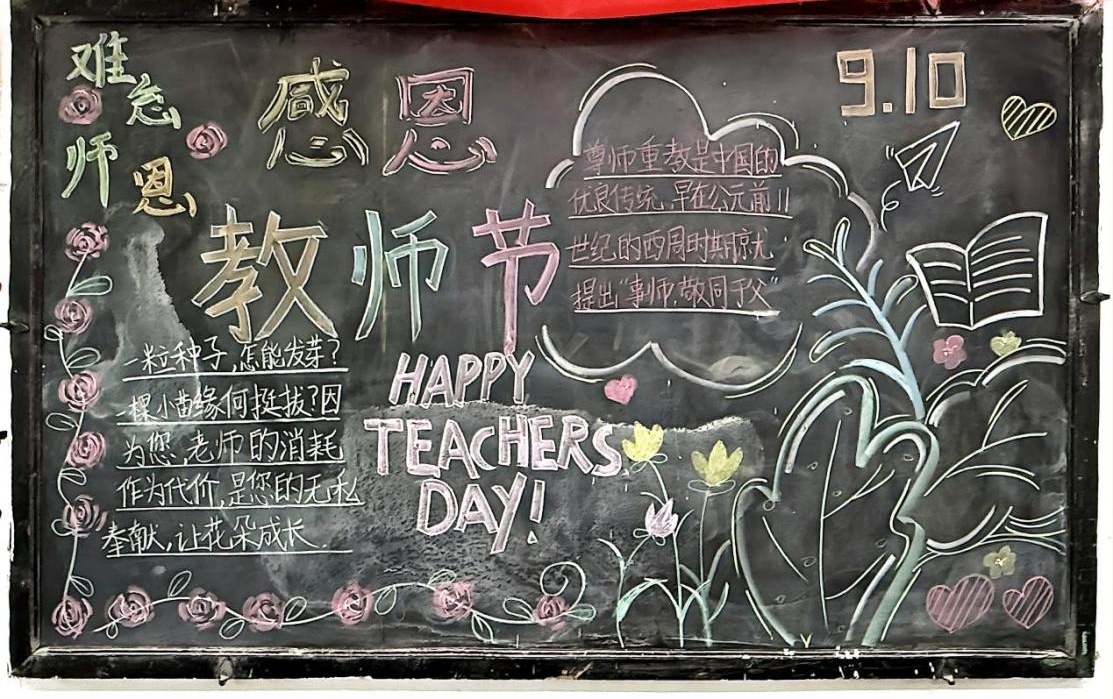 难忘
师恩
感恩
教师节
9.10
尊师重教是中国的
优良传统,早在公元前11
世纪的西周时期就
提出"事师,敬同于父"
一粒种子,怎能发芽?
一棵小苗缘何挺拔?因
为您,老师的消耗
作为代价,是您的无私
奉献,让花朵成长
HAPPY
TEACHERS
DAY!